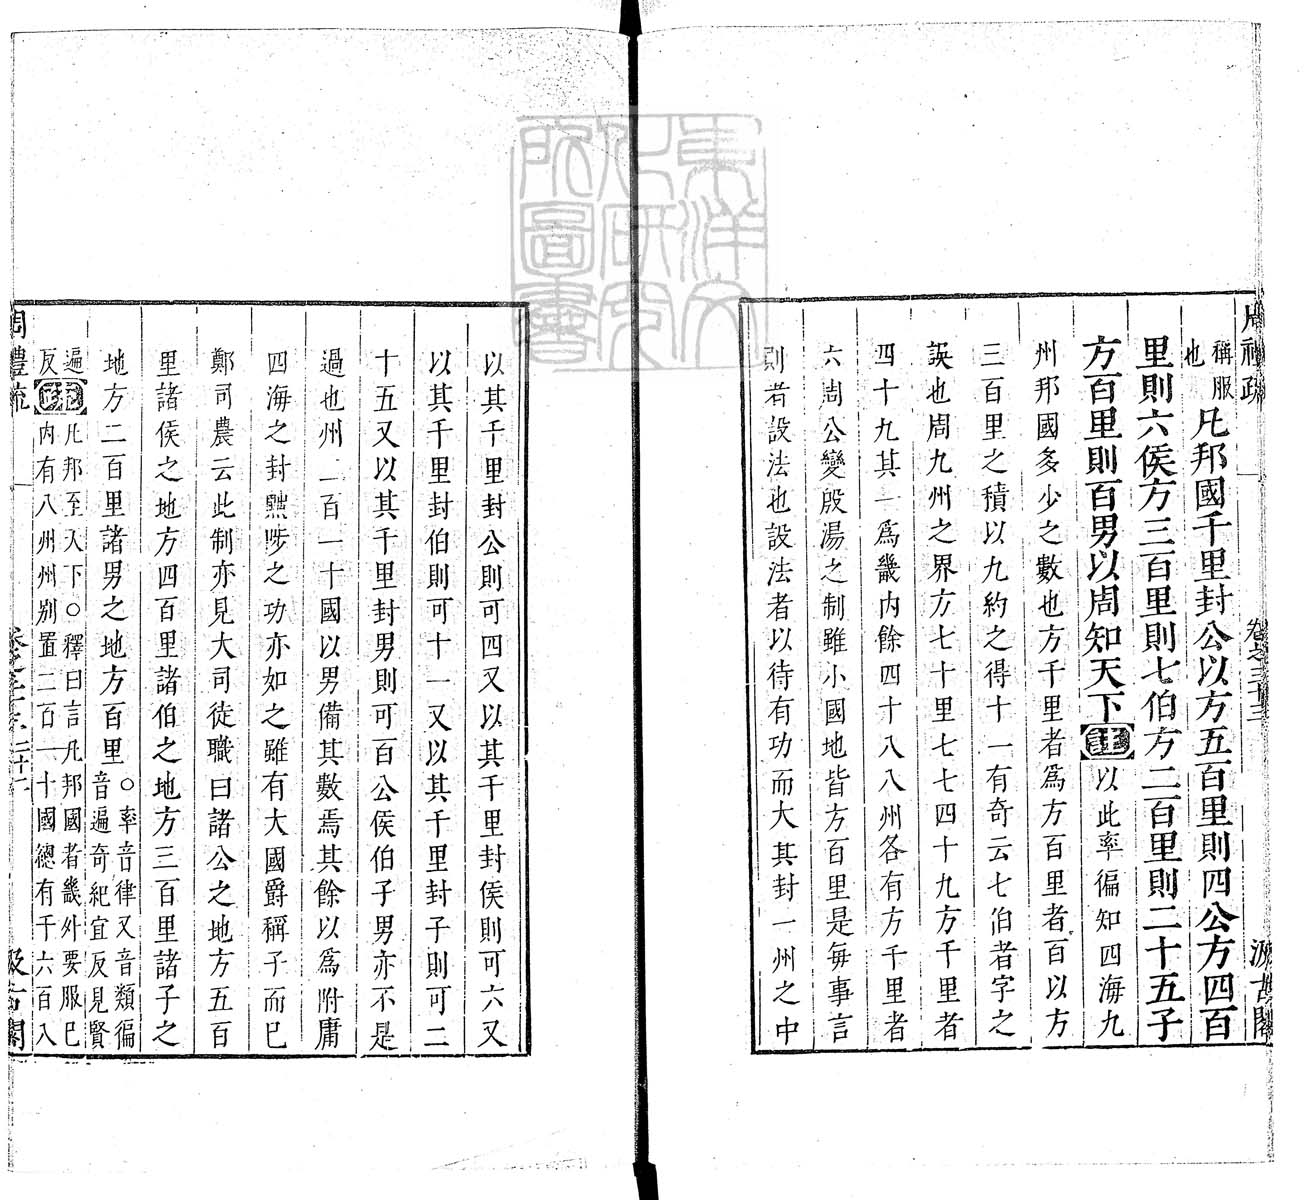 周禮疏
卷之三十三
汲古閣
稱服
也
凡邦國千里封公以方五百里則四公方四百
里則六侯方三百里則七伯方二百里則二十五子
方百里則百男以周知天下
注
以此率徧知四海九
州邦國多少之數也方千里者爲方百里者百以方
三百里之積以九約之得十一有奇云七伯者字之
誤也周九州之界方七千里七七四十九方千里者
四十九其一爲畿內餘四十八八州各有方千里者
六周公變殷湯之制雖小國地皆方百里是每事言
則者設法也設法者以待有功而大其封一州之中
以其千里封公則可四又以其千里封侯則可六又
以其千里封伯則可十一又以其千里封子則可二
十五又以其千里封男則可百公侯伯子男亦不是
過也州二百一十國以男備其數焉其餘以爲附庸
四海之封黜陟之功亦如之雖有大國爵稱子而已
鄭司農云此制亦見大司徒職曰諸公之地方五百
里諸侯之地方四百里諸伯之地方三百里諸子之
地方二百里諸男之地方百里
○率音律又音類徧
音遍奇紀宜反見賢
遍
反
疏
凡邦至天下○釋曰言凡邦國者畿外要服已
內有八州州別置二百一十國總有千六百八
周禮疏
汲古閣
東洋文
化研究
所圖書